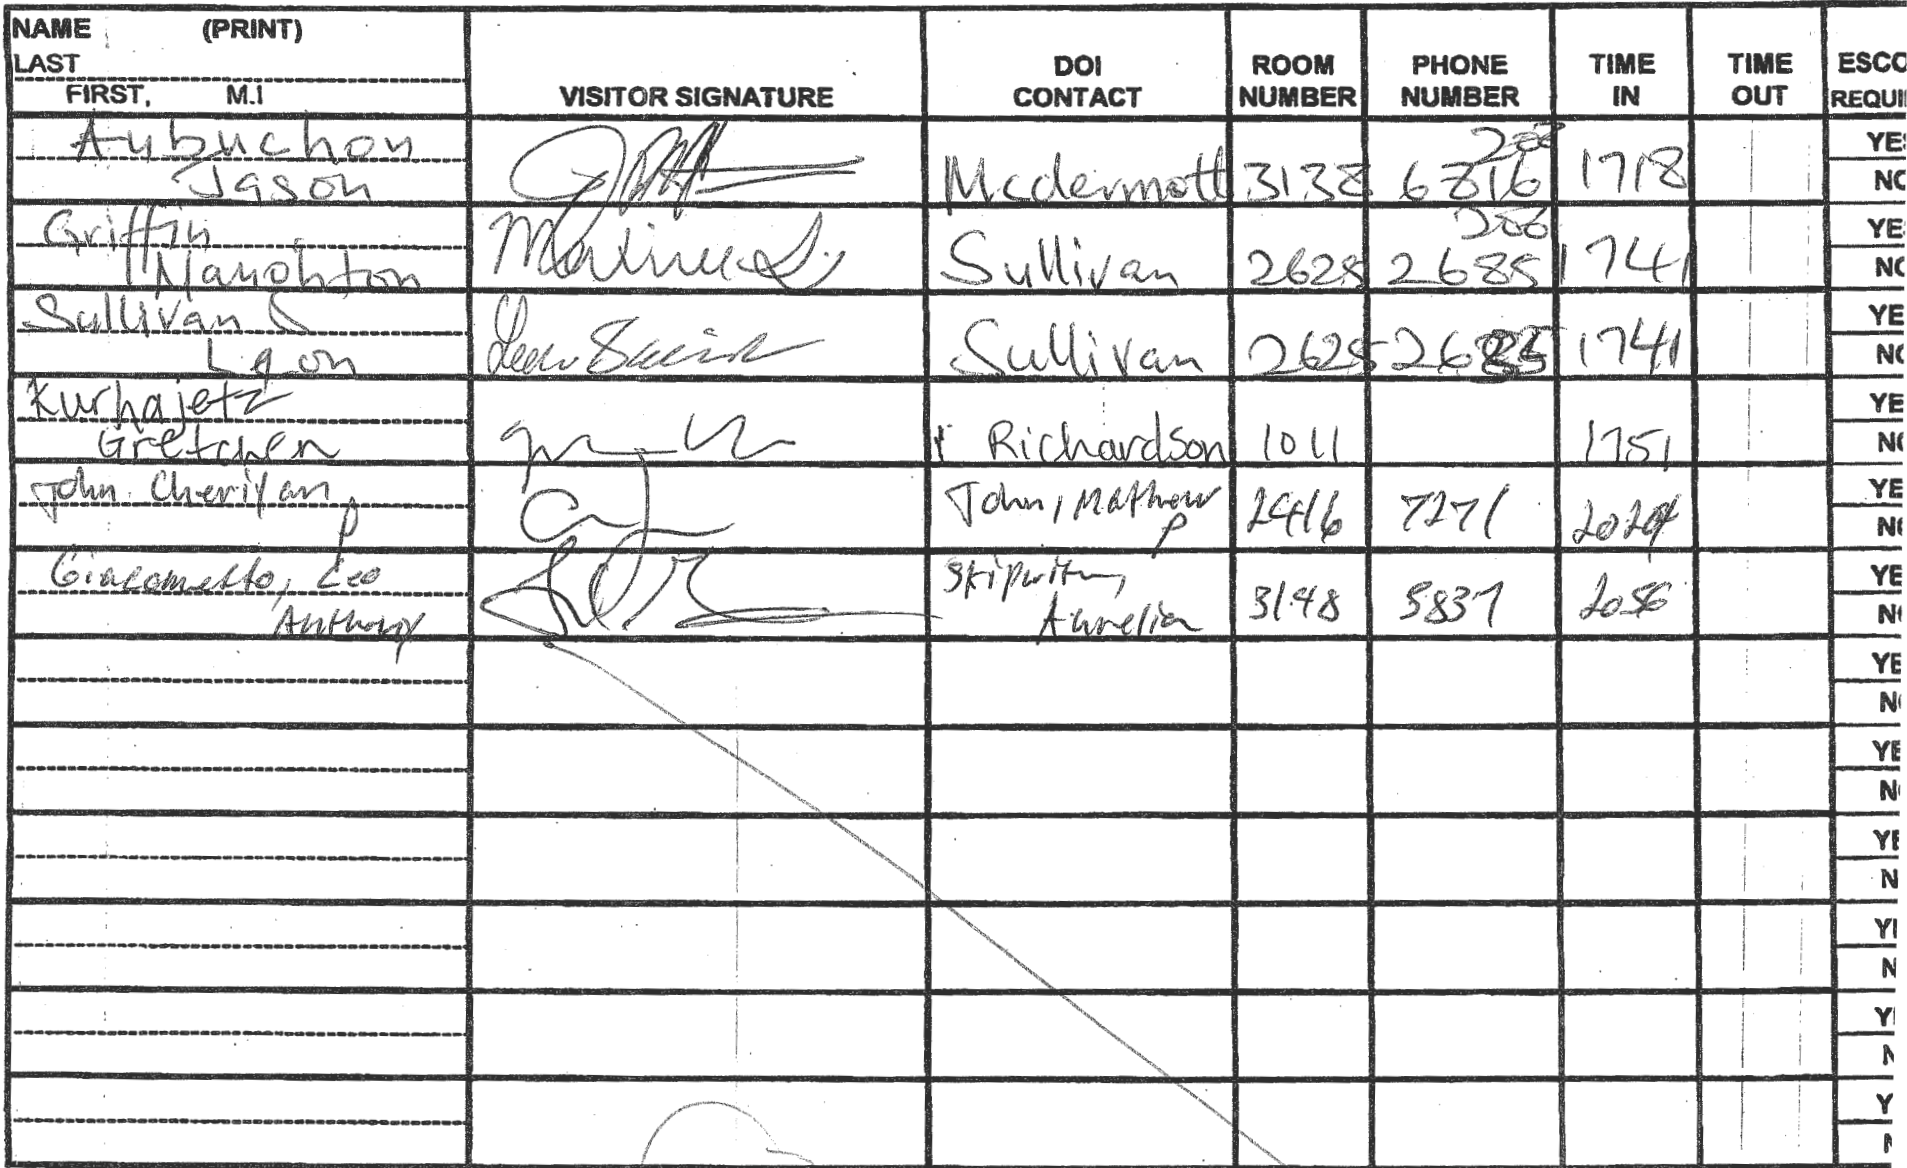 NAME (PRINT)
LAST
FIRST, M.I
VISITOR SIGNATURE
DOI CONTACT
ROOM NUMBER
PHONE NUMBER
TIME IN
TIME OUT
ESCO
REQUI
Aubuchon Jason Mcdermott 3138 208 6816 1718 YES NO
Griffin Sullivan 2625 208 2685 1741 YES NO
Sullivan S Leon Sullivan 2625 2685 1741 YE NO
Kurhajetz Gretchen Richardson 1011 1751 YE NO
John Cheriyan P John, Mathew P 2416 7271 YE NO
Giacometto, Leo Anthony Aurelia 3148 5837 2056 YE NO
YE
NO
YE
N
YE
N
YI
N
Y
N
Y
N